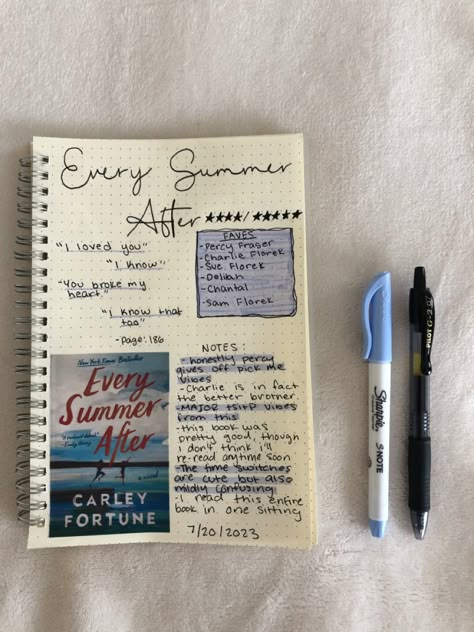 Every Summer
After ★★★★/★★★★★
"I loved you"
"I know"
"You broke my
heart."
"I know that
too"
-Page: 186
FAVES
-Percy Fraser
-Charlie Florek
-Sue Florek
-Delilah
-Chantal
-Sam Florek
NOTES:
-honestly percy
gives off pick me
vibes
-Charlie is in fact
the better brother.
-MAJOR tsitp vibes
from this
-this book was
pretty good, though
i don't think i'll
re-read anytime soon
-The time switches
are cute but also
mildly confusing
-I read this entire
book in one sitting
7/20/2023
New York Times Bestseller
Every
Summer
After
a novel
CARLEY
FORTUNE
Sharpie
S·NOTE
PILOT G-2